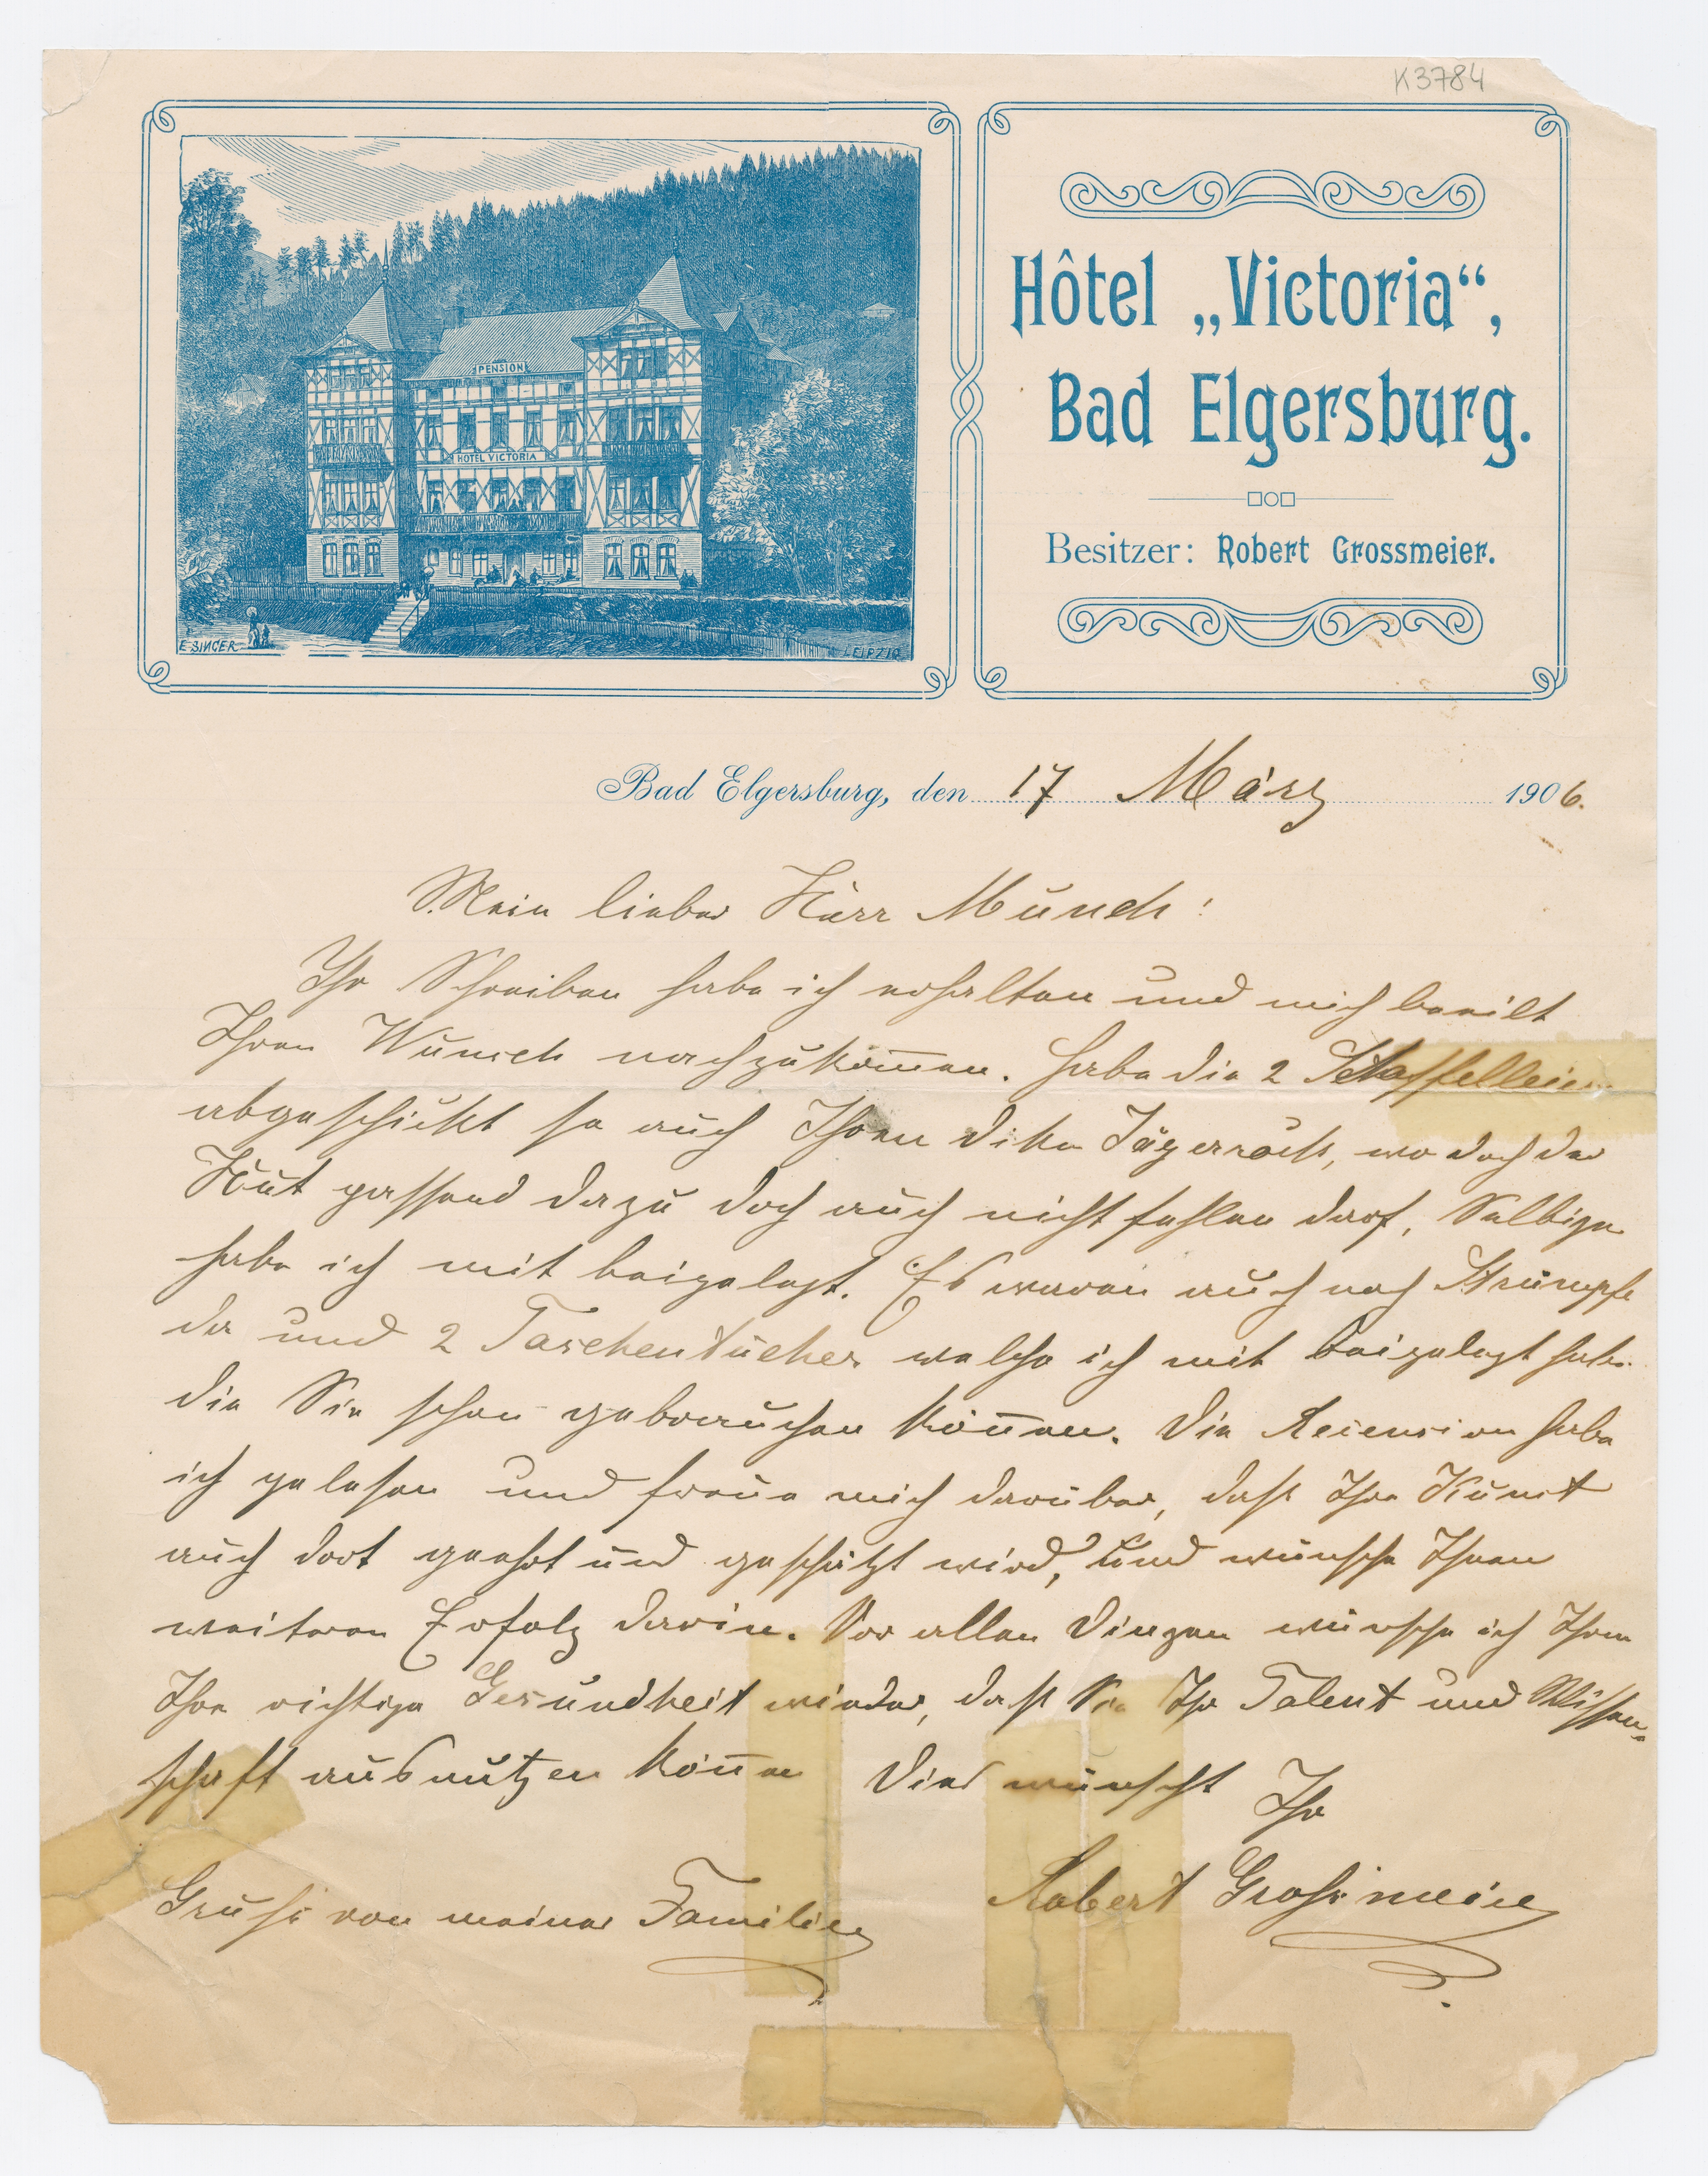 K3784
PENSION
HOTEL VICTORIA
E. SINGER
LEIPZIG
Hôtel „Victoria“,
Bad Elgersburg.
Besitzer: Robert Grossmeier.
Bad Elgersburg, den 17 März 1906.
Mein lieber Herr Munch:
Ihr Schreiben habe ich erhalten und mich beeilt
Ihren Wunsch nachzukom̅en. Habe die 2 Staffeleien
abgeschickt so auch Ihren Jägerrock, wo doch der
Hut passend dazu doch auch nicht fehlen darf, Selbige
habe ich mit beigelegt. Es waren auch noch Strümpfe
da und 2 Taschentücher welche ich mit beigelegt habe
die Sie schon gebrauchen kön̅en. Die Recension habe
ich gelesen und freue mich darüber, daß Ihre Kunst
auch dort geehrt und geschützt wird, und wünsche Ihnen
weiteren Erfolg darin. Vor allen Dingen wünsche ich Ihnen
Ihre richtige Gesundheit wieder, daß Sie Ihr Talent und Wissen-
schaft ausnützen kön̅en Dies wünscht Ihr
Robert Großmeier
Gruß von meiner Familie